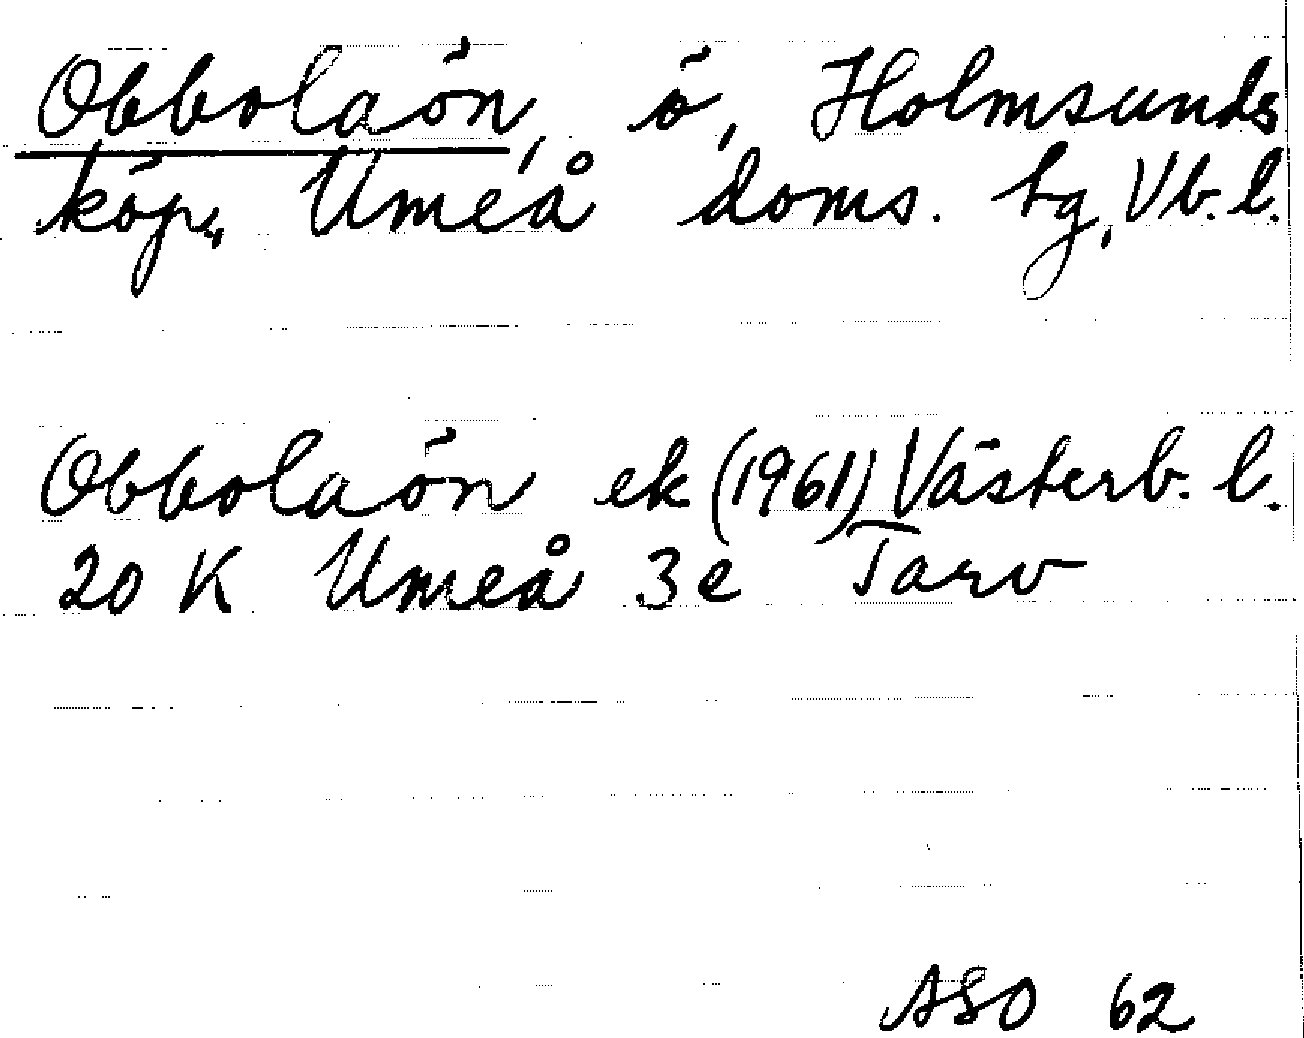 Obbolaön, ö, Holmsunds
köp., Umeå doms. tg, Vb. l.
Obbolaön ek (1961) Västerb. l.
20 K Umeå 3 e Tarv
ASO 62